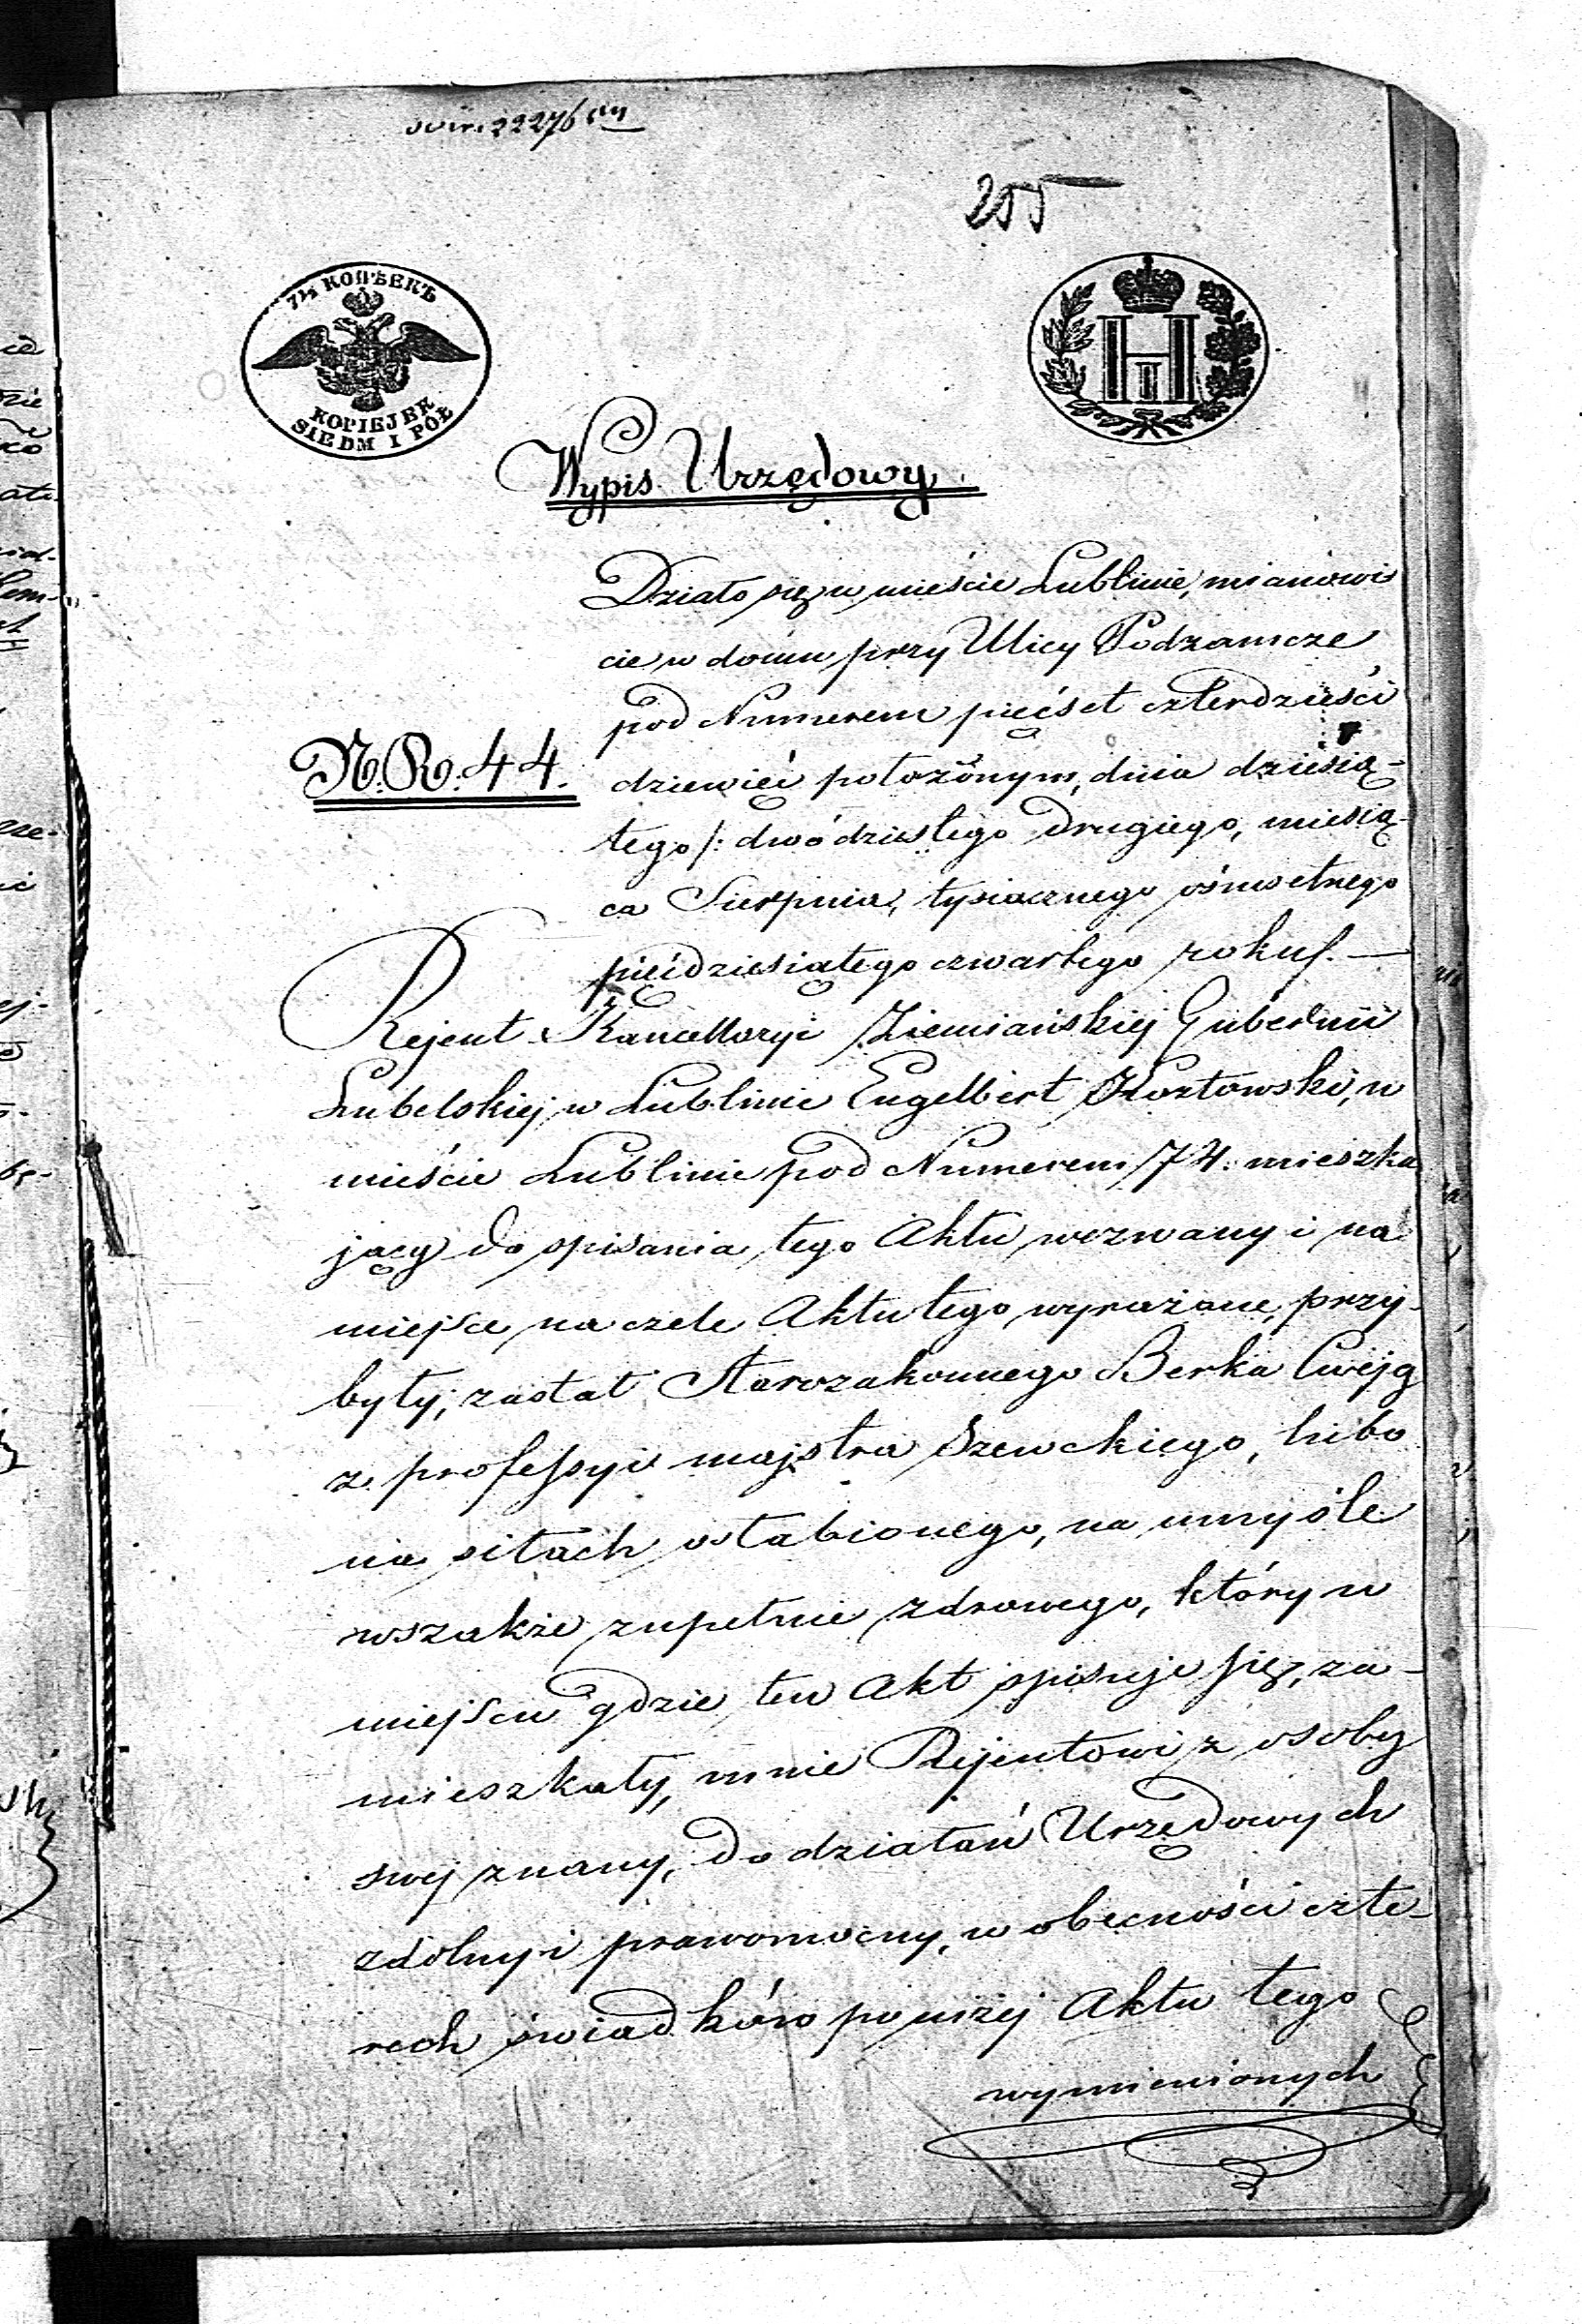 22276
255
7½ КОПѢЕКЪ
KOPIEJEK
SIEDM I PÓŁ
H I
Wypis Urzędowy.
Działo się w mieście Lublinie, mianowi
cie w domu przy Ulicy Podzamcze
pod Numerem pięćset czterdzieści
dziewięć położonym, dnia dziesią-
N. Ro. 44.
tego /: dwódziestego drugiego, miesią-
ca Sierpnia, tysiacznego ośmsetnego
pięćdziesiątego czwartego roku /. —
Rejent Kancellaryi Ziemiańskiej Gubernii
Lubelskiej w Lublinie Engelbert Kozłowski, w
mieście Lublinie pod Numerem 74: mieszka
jący do spisania tego Aktu wezwany i na
miejsce na czele Aktu tego wyrażone, przy-
były; zastał Starozakonnego Berka Cwejg
z professyi majstra Szewckiego, lubo
na siłach osłabionego, na umyśle
wszakże zupełnie zdrowego, który w
miejscu gdzie ten Akt spisuje się, za-
mieszkały, mnie Rejentowi z osoby
swej znany, do działań Urzędowych
zdolny i prawomocny, w obecności czte-
rech świadków poniżej Aktu tego
wymienionych